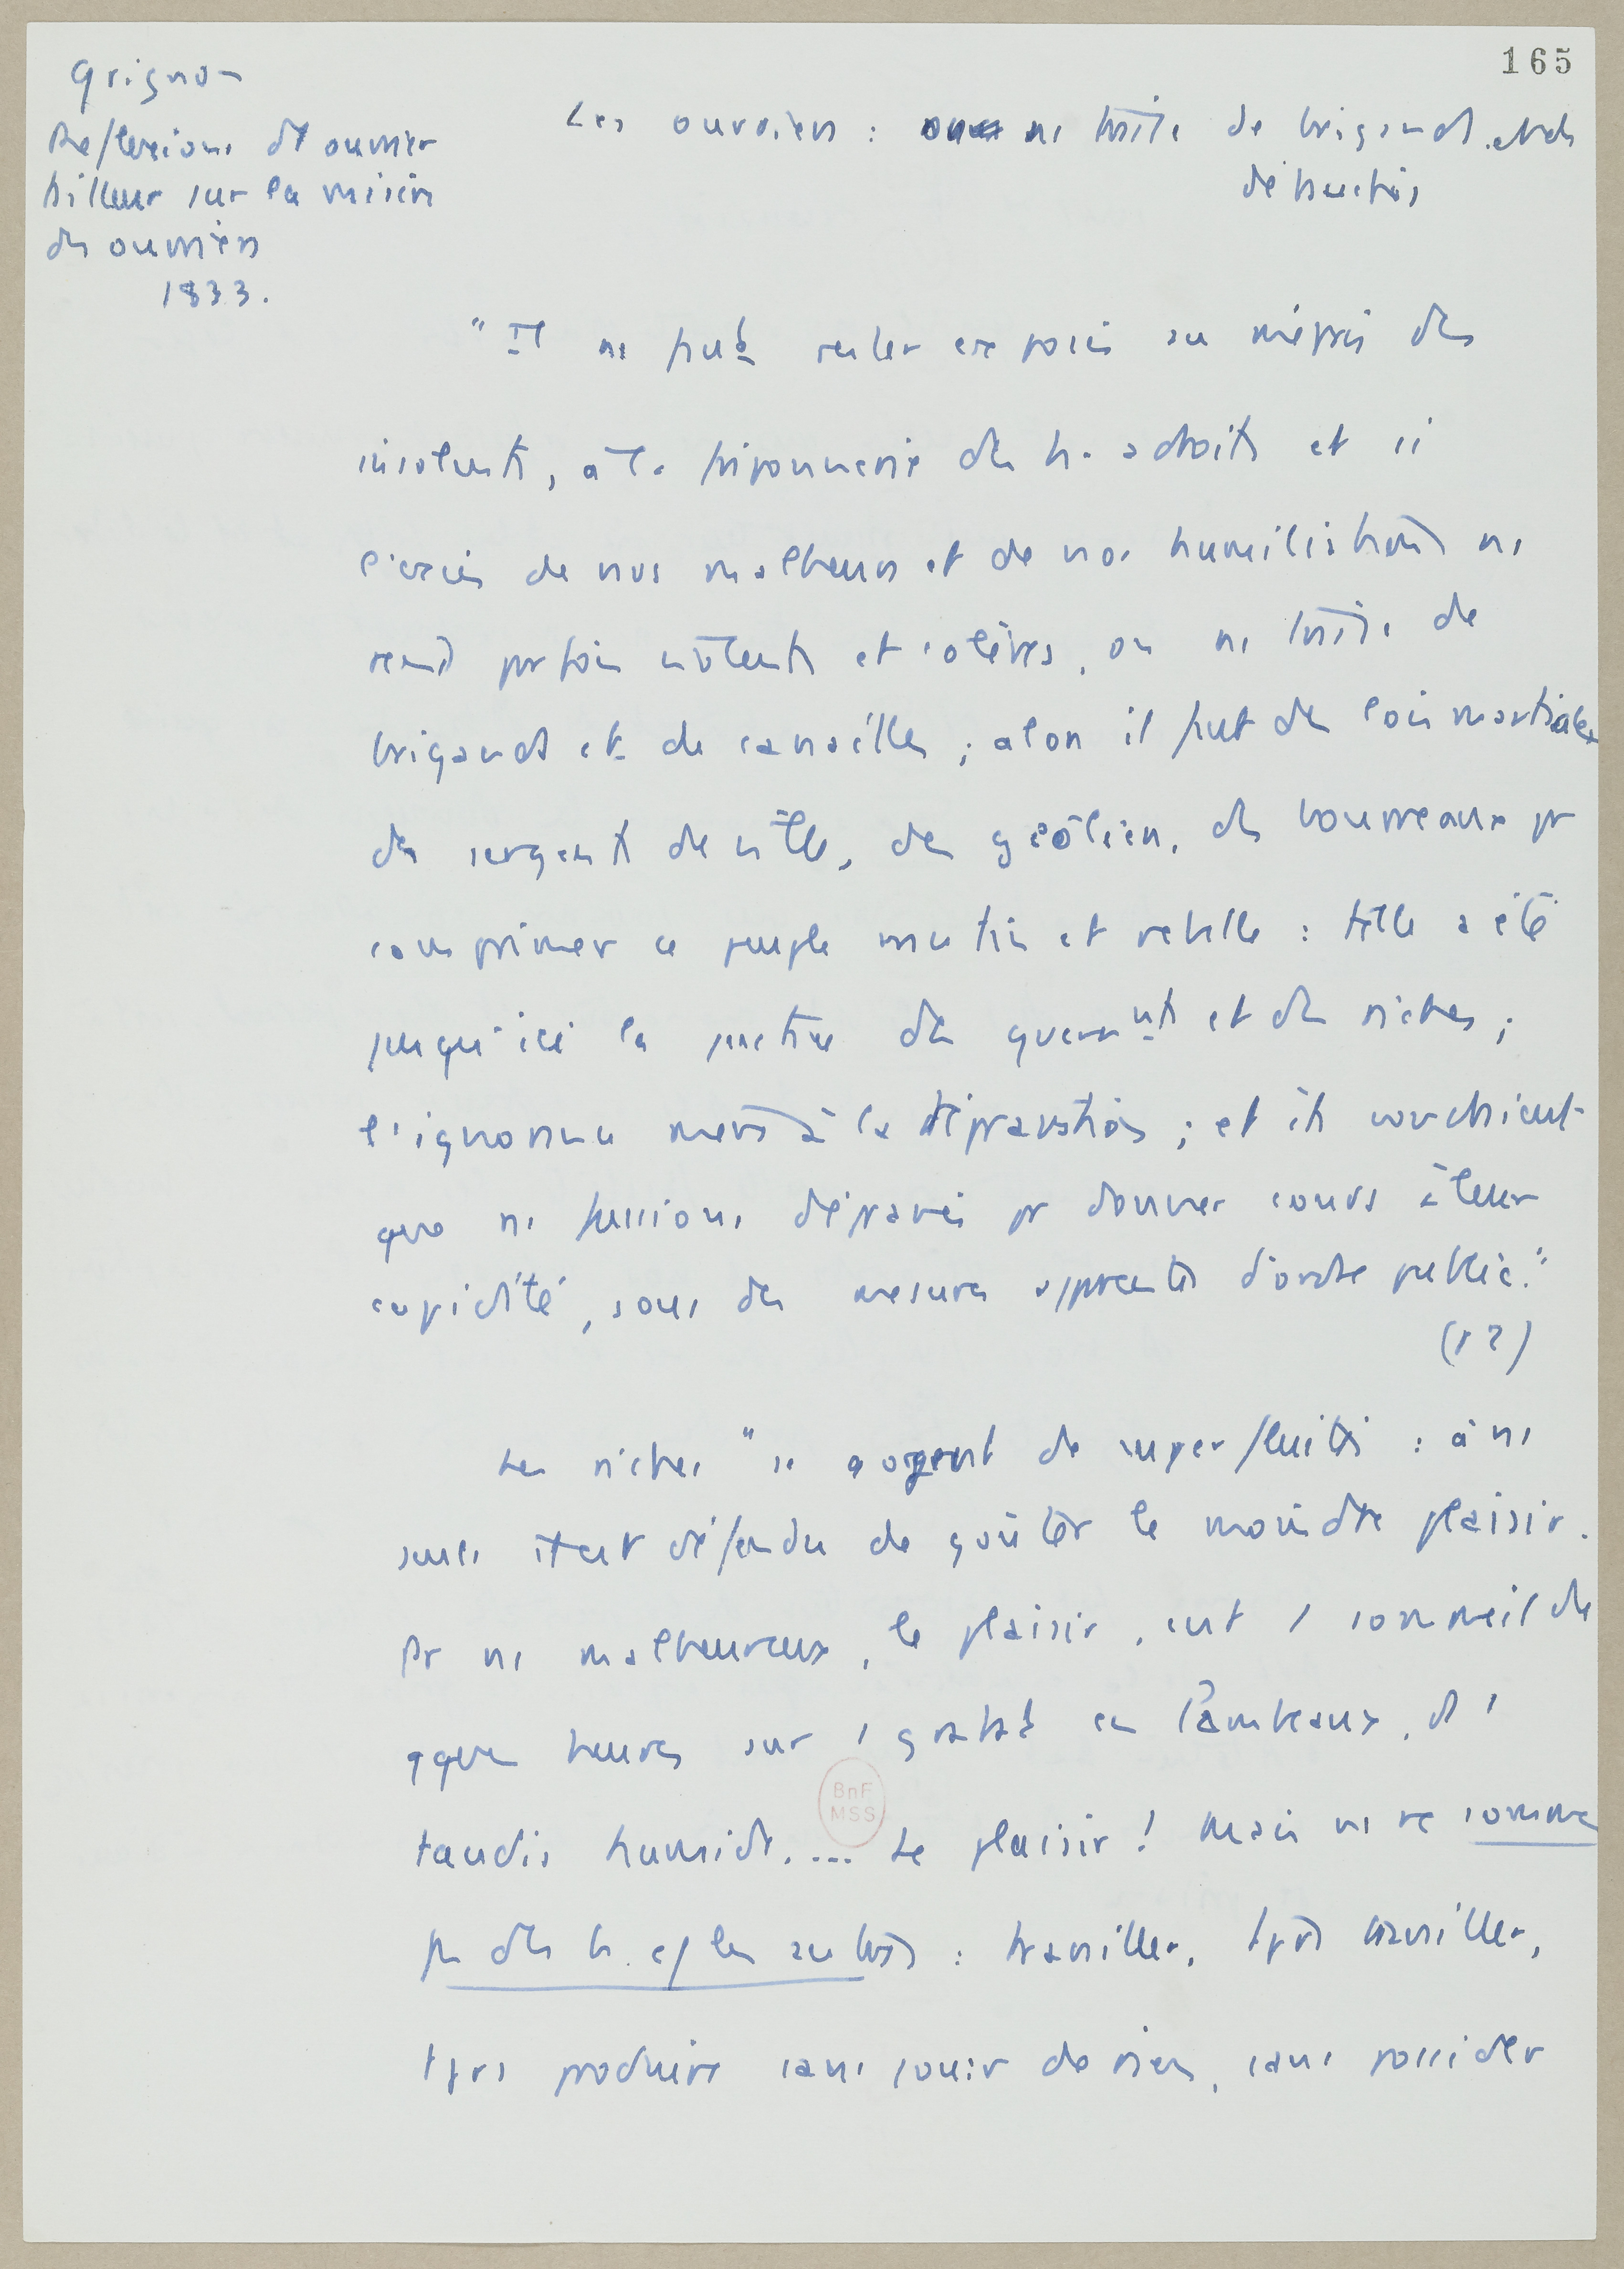 165
Grignon
Reflexions d'1 ouvrier
tailleur sur la misère
des ouvriers
1833.
Les ouvriers : on ns traite de brigands et de
détracteurs
"Il ns faut rester exposés au mépris des
insolents, à la friponnerie des h. adroits et si
l'excès de nos malheurs et de nos humiliations ns
rend parfois violents et colères, on ns traite de
brigands et de canailles ; alors il faut des lois martiales
des sergents de ville, des geôliers, des bourreaux pr
comprimer ce peuple mutin et rebelle : telle a été
jusqu'ici la justice des gvernants et des riches ;
l'ignorance mène à la dépravation ; et ils voudraient
que ns fussions dépravés pr donner cours à leur
cupidité, sous des mesures apparentes d'ordre public."
(12)
Les riches "se gorgent de superfluités : à ns
seuls il est défendu de goûter le moindre plaisir.
Pr ns malheureux, le plaisir, c'est 1 sommeil de
qques heures sur 1 grabat en lambeaux, ds 1
taudis humide.... Le plaisir ! Mais ns ne sommes
pas des h. c/ les autres : travailler, tjrs travailler,
tjrs produire sans jouir de rien, sans posséder
BnF
MSS